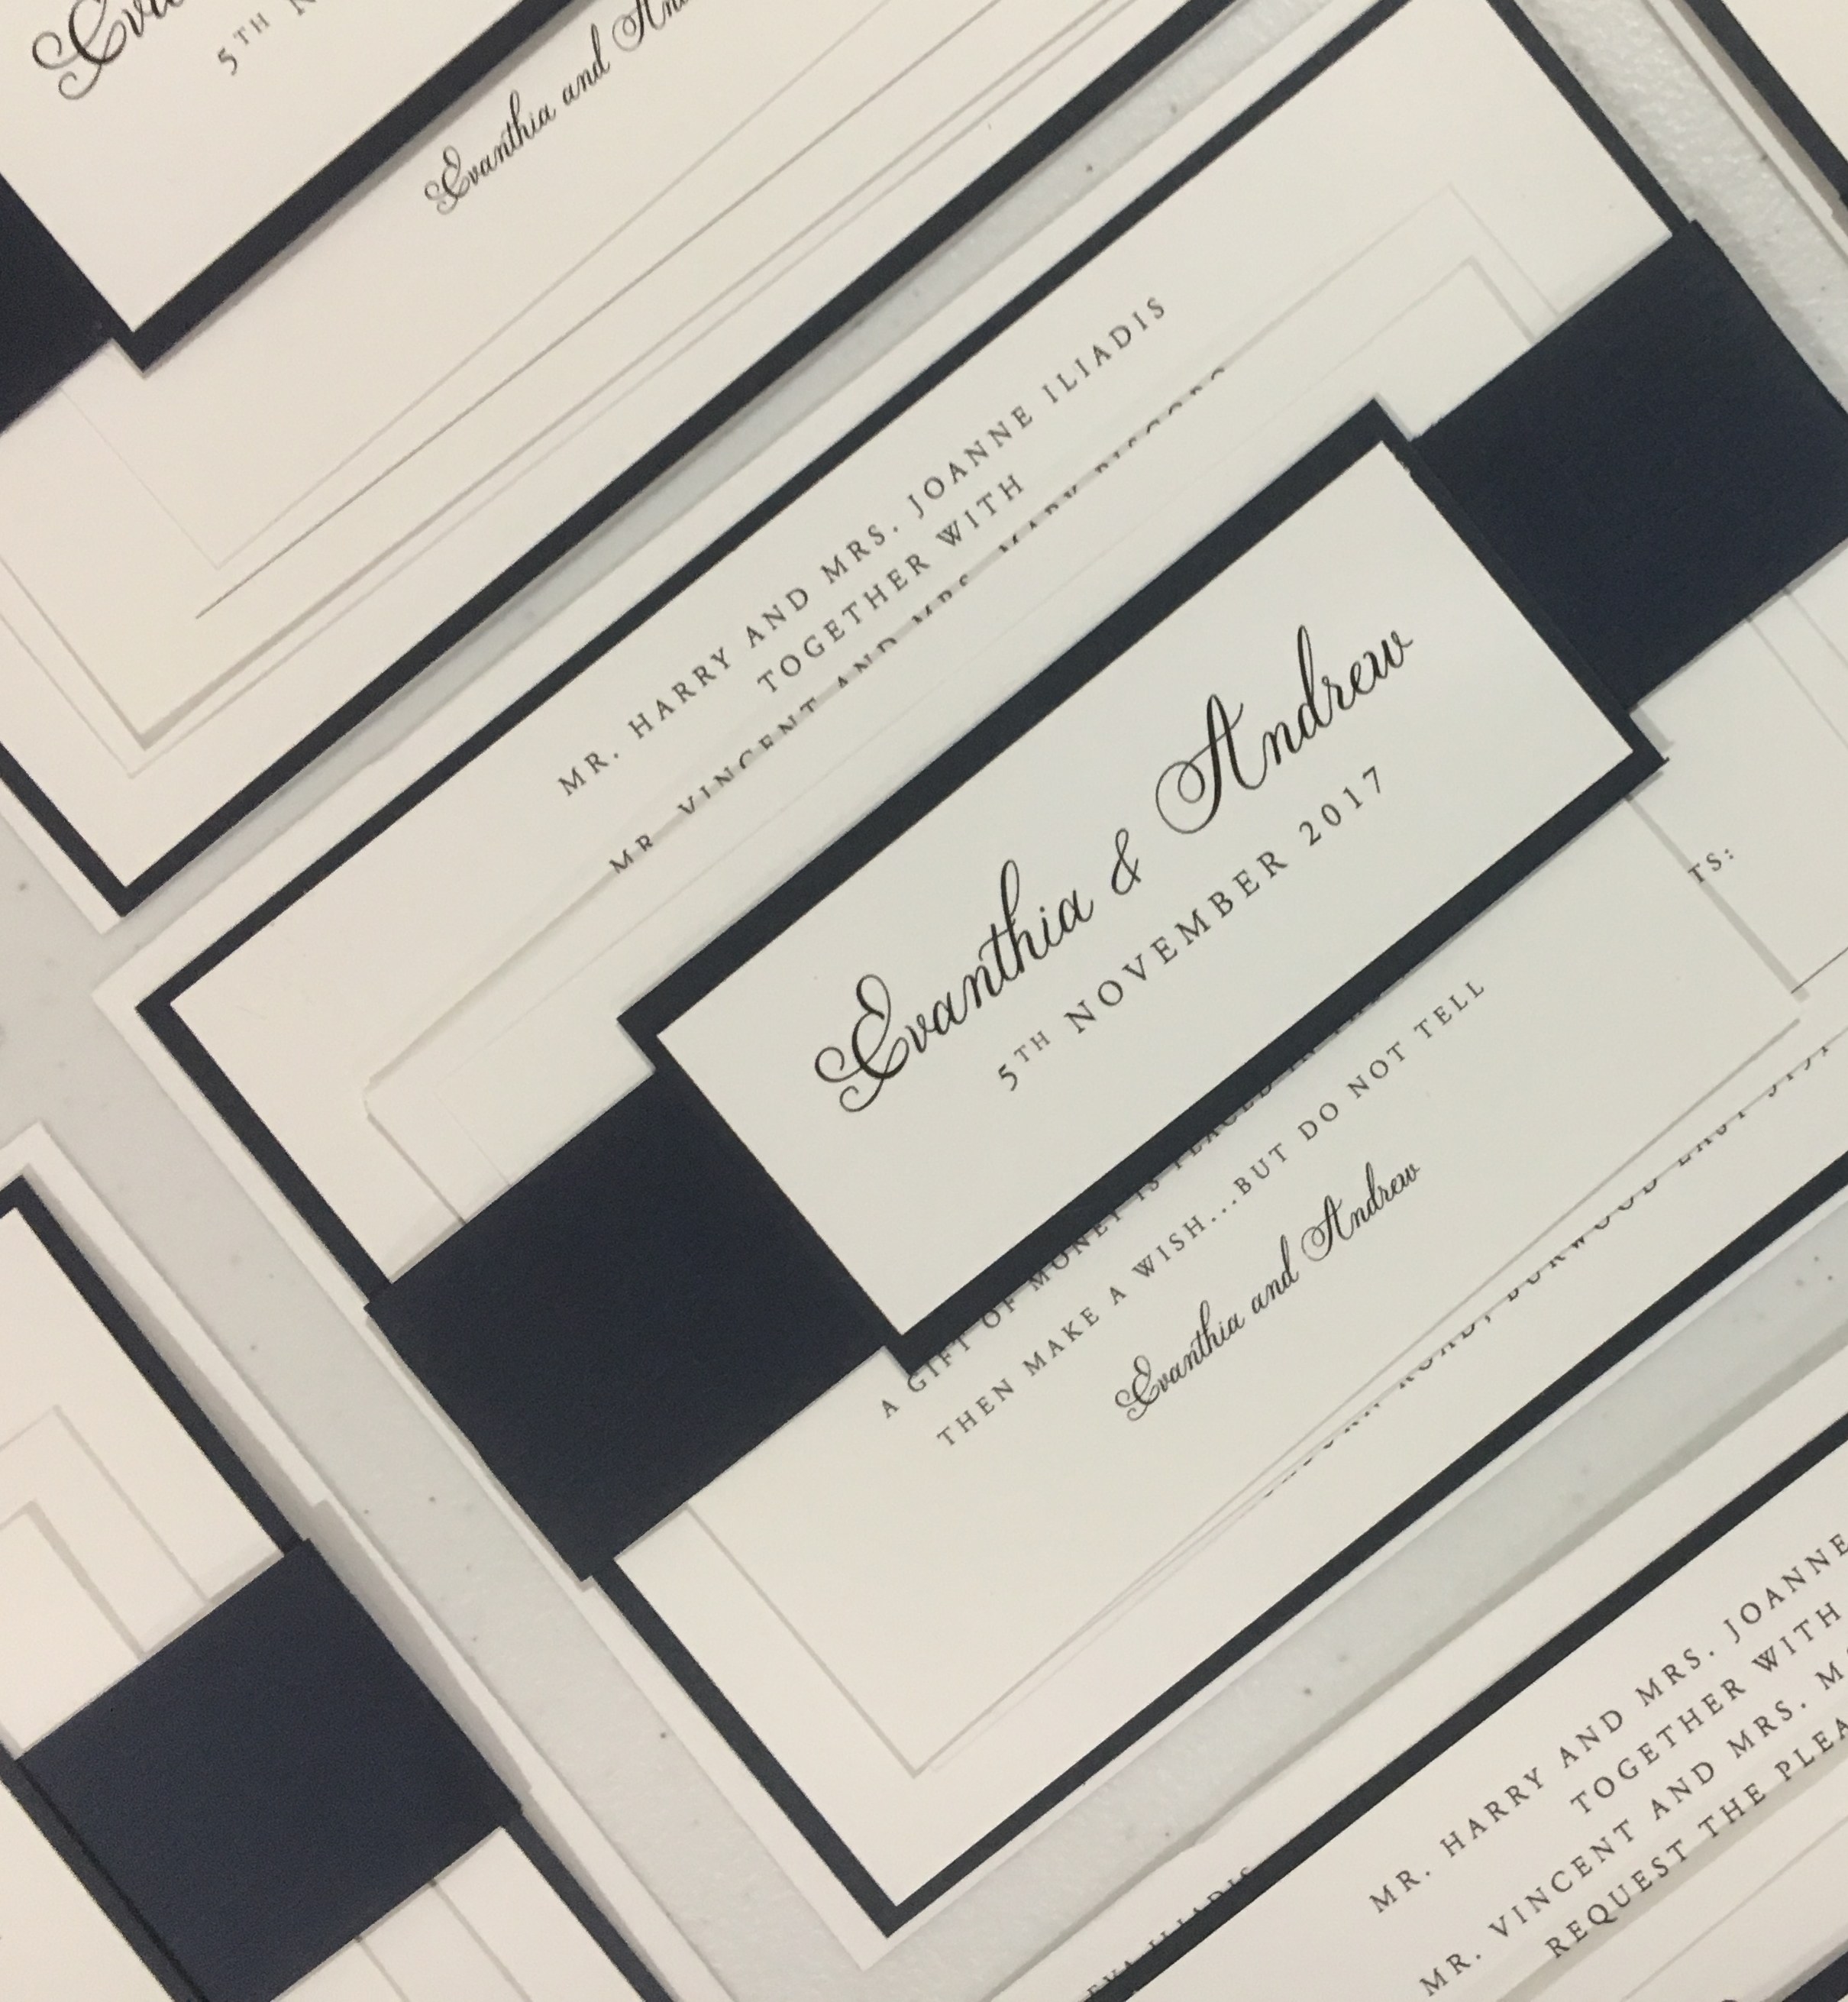 5TH
Evanthia and
MR. HARRY AND MRS. JOANNE ILIADIS
TOGETHER WITH
MR. VINCENT AND MRS. MARY
Evanthia & Andrew
5TH NOVEMBER 2017
TS:
A GIFT OF MONEY IS PLACED
THEN MAKE A WISH...BUT DO NOT TELL
Evanthia and Andrew
ILIADIS
MR. HARRY AND MRS. JOANNE
TOGETHER WITH
MR. VINCENT AND MRS.
REQUEST THE